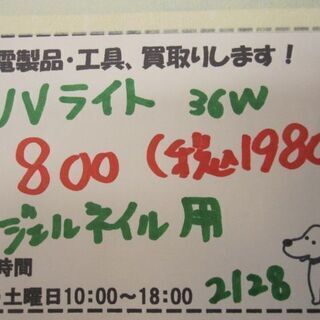 電製品・工具、買取りします!
UVライト 36W
800 (税込1980
ジェルネイル用
時間
土曜日10:00～18:00 2128